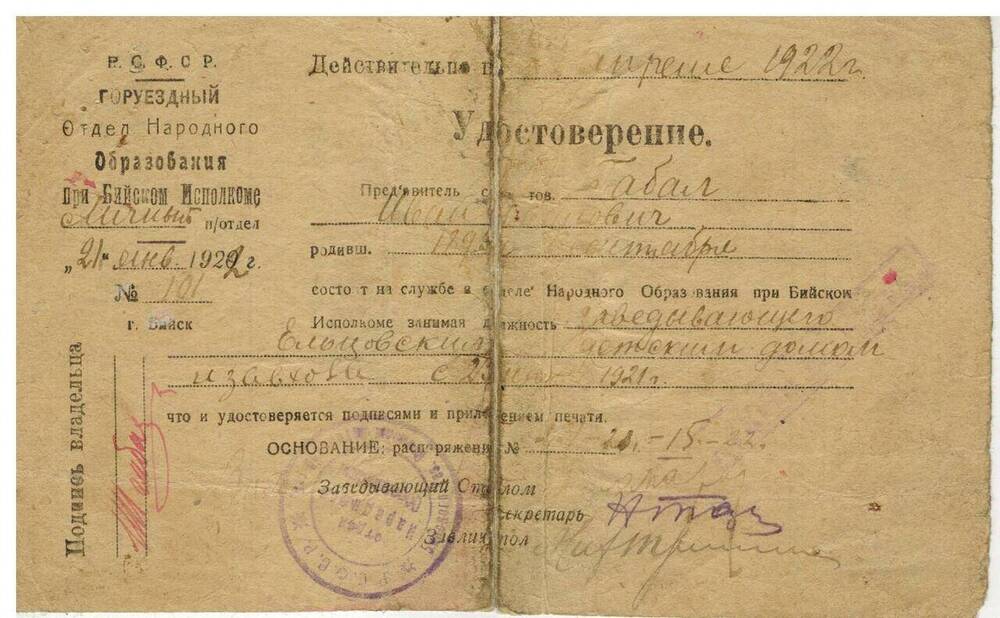 Р. С. Ф. С Р.
ГОРУЕЗДНЫЙ
Отдел Народного
Образования
при Бийском Исполкоме
Личный п/отдел
„21" янв. 1922 г.
№ 191
г. Бийск
Подпись владельца
Действительно 1922 г.
Удостоверение.
Пред'явитель тов. Габал
Иван
родивш. сентября
состоит на службе в отделе Народного Образования при Бийском
Исполкоме занимая должность заведывающего
Ельцовским детским домом
и завхоза с 1921 г.
что и удостоверяется подписями и приложением печати.
ОСНОВАНИЕ: распоряжение № -15-22.
Заведывающий Столом
Секретарь
Завличстол
Р.С.Ф.С.Р.